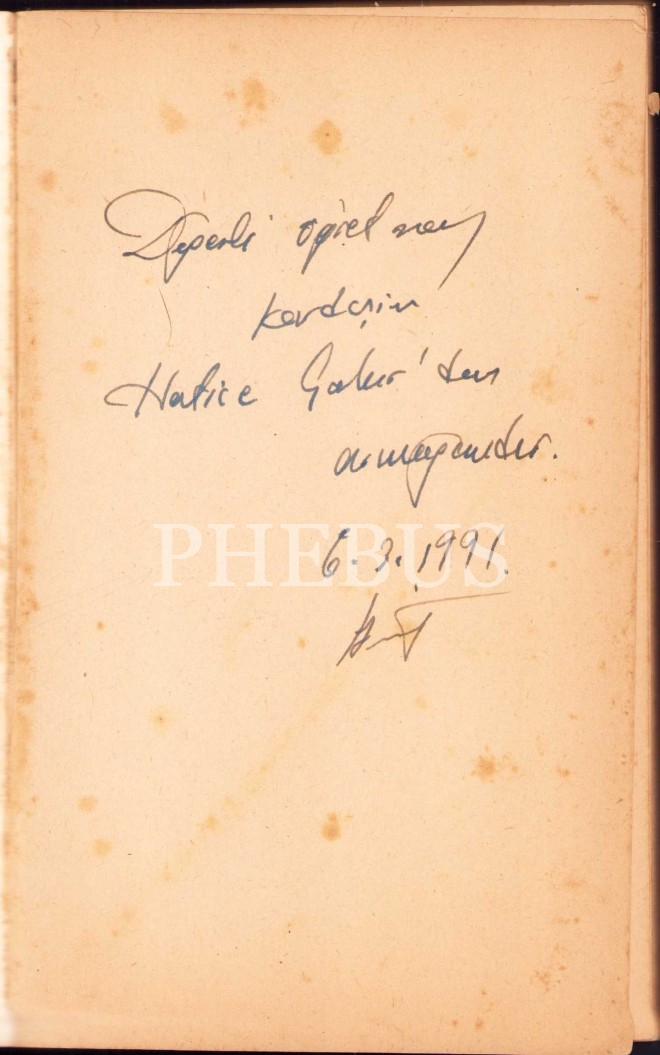 Değerli öğretmen
kardeşim
Hatice Çakır'dan
armağandır.
PHEBUS
6.3.1991.